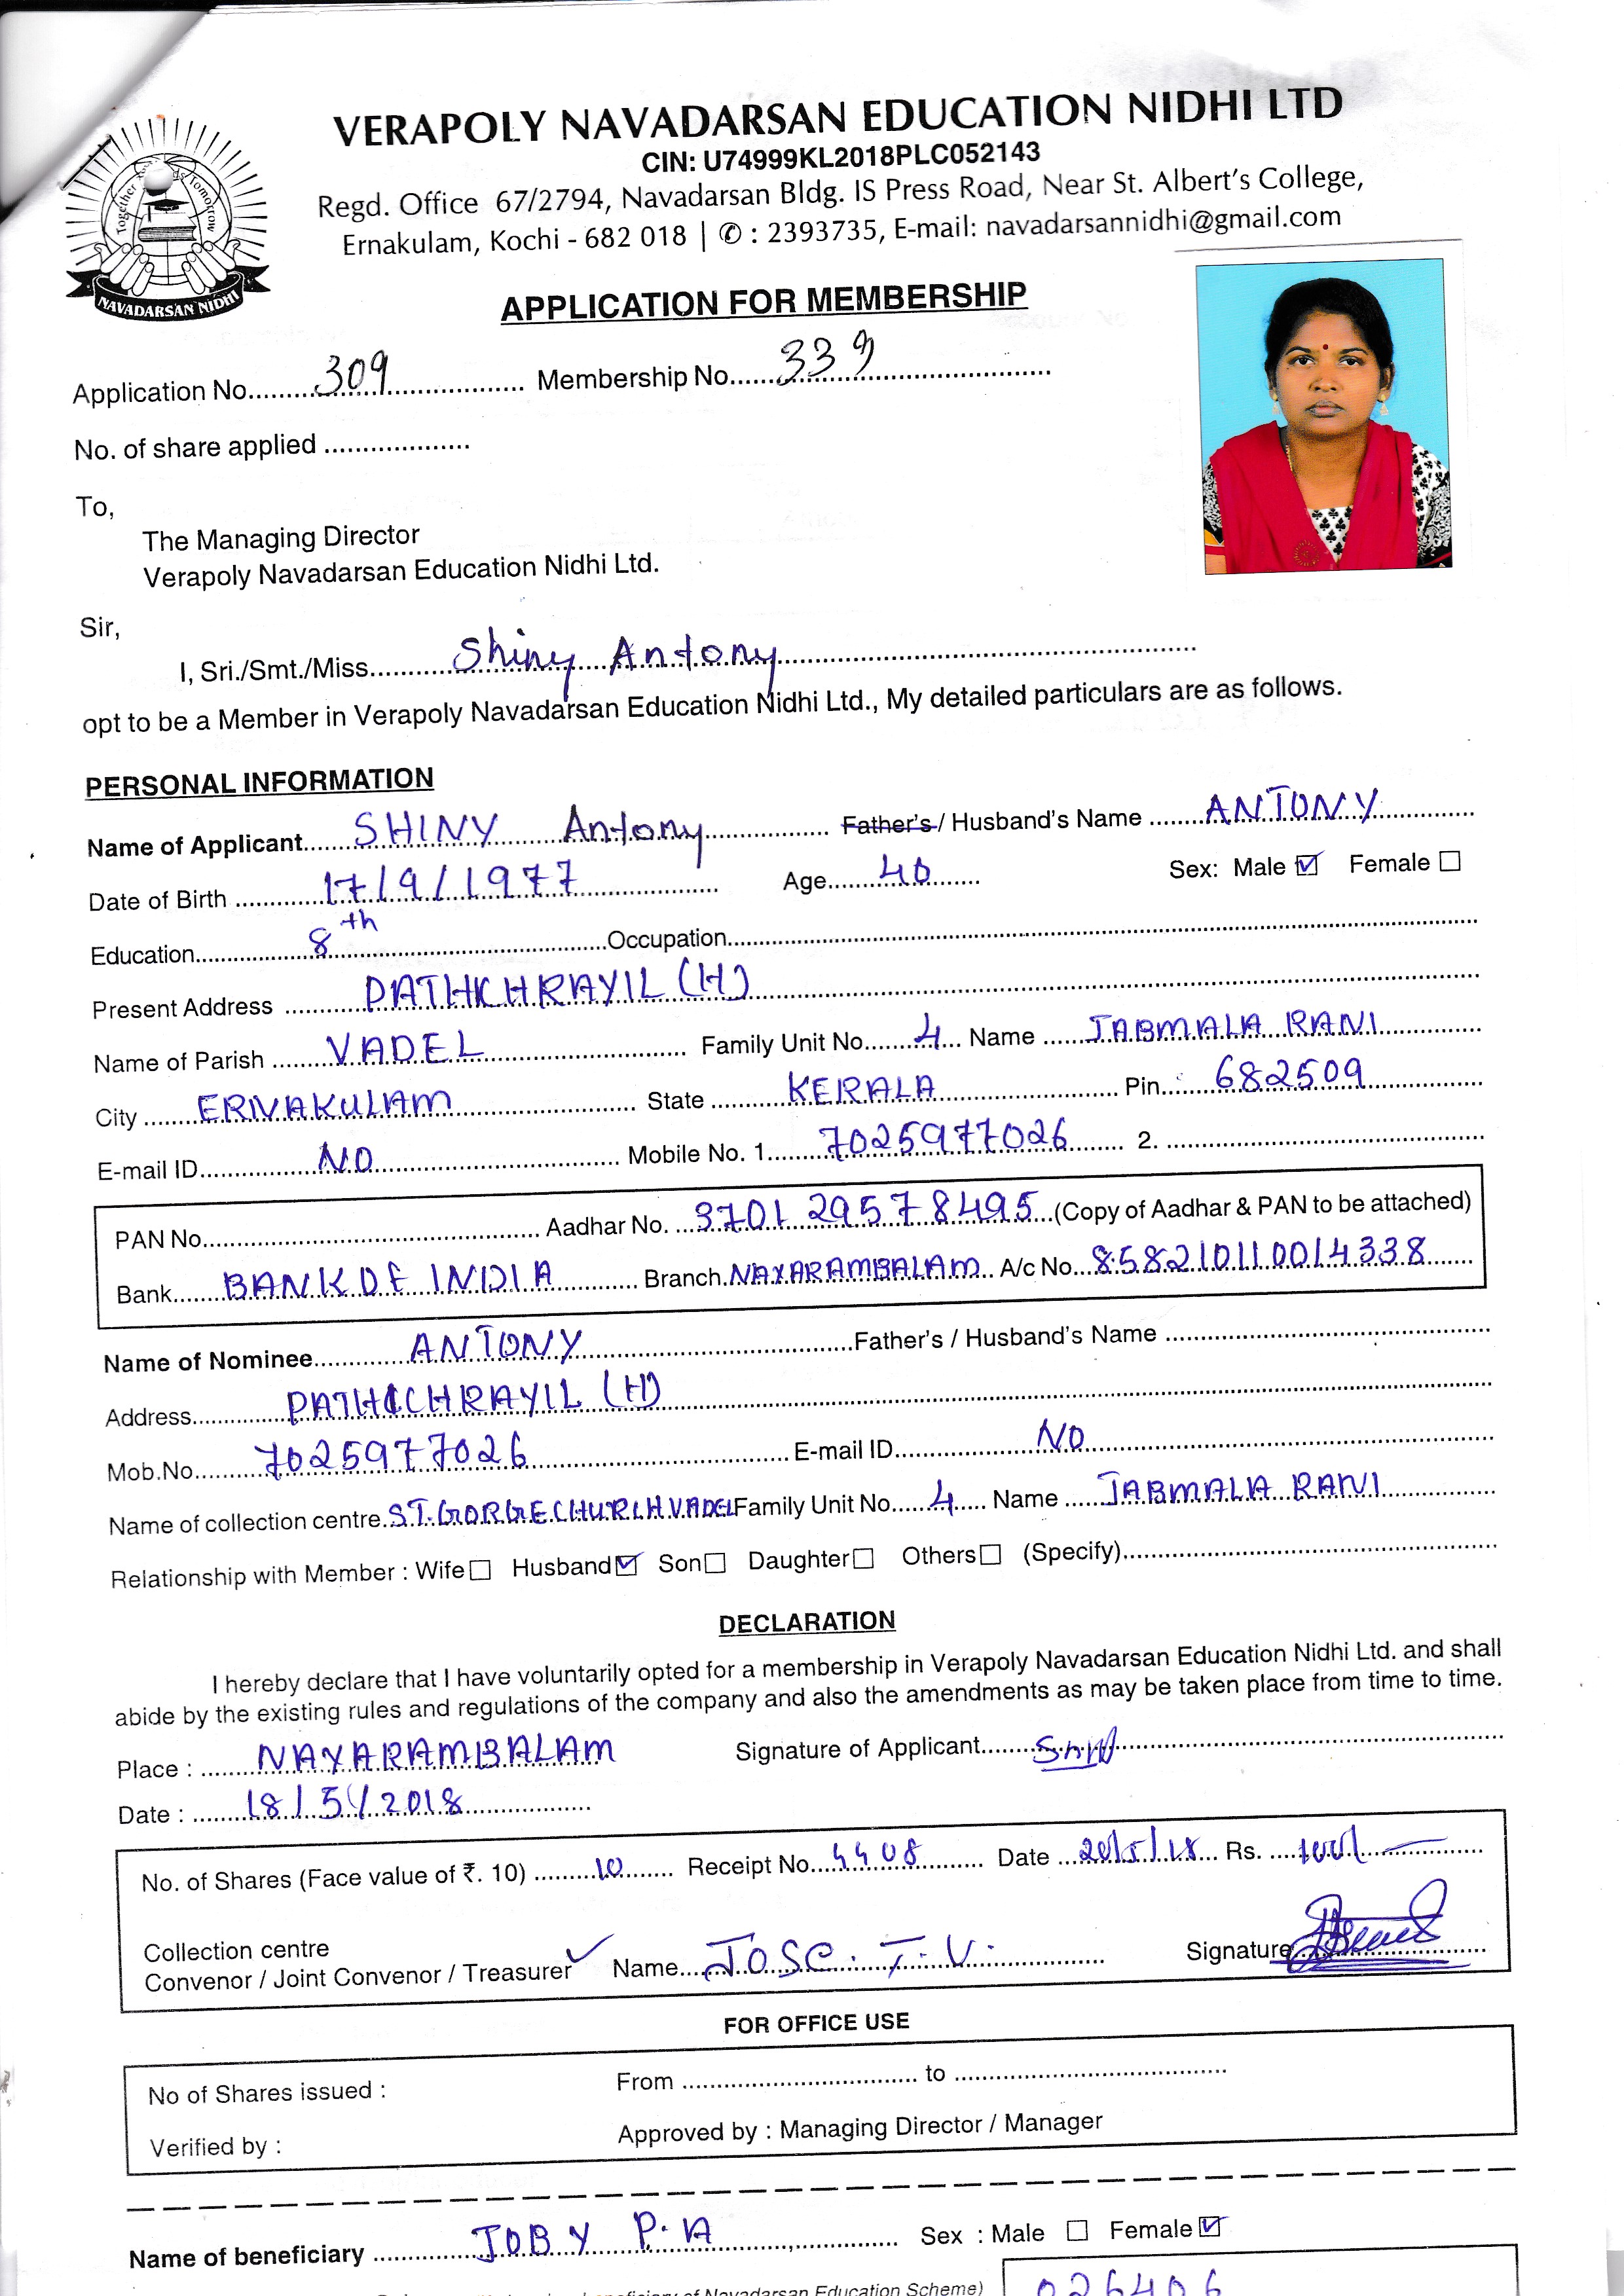 VERAPOLY NAVADARSAN EDUCATION NIDHI LTD
CIN: U74999KL2018PLC052143
Regd. Office 67/2794, Navadarsan Bldg. IS Press Road, Near St. Albert's College,
Ernakulam, Kochi - 682 018 | ✆ : 2393735, E-mail: navadarsannidhi@gmail.com
NAVADARSAN NIDHI
APPLICATION FOR MEMBERSHIP
Application No. 309 Membership No. 339
No. of share applied
To,
The Managing Director
Verapoly Navadarsan Education Nidhi Ltd.
Sir,
I, Sri./Smt./Miss. Shiny Antony
opt to be a Member in Verapoly Navadarsan Education Nidhi Ltd., My detailed particulars are as follows.
PERSONAL INFORMATION
Name of Applicant SHINY Antony Father's / Husband's Name ANTONY
Date of Birth 17/9/1977 Age 40 Sex: Male ☑ Female ☐
Education 8th Occupation
Present Address PATHICHRAYIL (H)
Name of Parish VADEL Family Unit No. 4 Name JABMALA RANI
City ERNAKULAM State KERALA Pin 682509
E-mail ID NO Mobile No. 1 7025977026 2.
PAN No. Aadhar No. 3701 2957 8495 (Copy of Aadhar & PAN to be attached)
Bank BANK OF INDIA Branch NAYARAMBALAM A/c No. 858210110014338
Name of Nominee ANTONY Father's / Husband's Name
Address PATHICHRAYIL (H)
Mob.No. 7025977026 E-mail ID NO
Name of collection centre ST. GORGE CHURCH VADEL Family Unit No. 4 Name JABMALA RANI
Relationship with Member : Wife ☐ Husband ☑ Son ☐ Daughter ☐ Others ☐ (Specify)
DECLARATION
I hereby declare that I have voluntarily opted for a membership in Verapoly Navadarsan Education Nidhi Ltd. and shall
abide by the existing rules and regulations of the company and also the amendments as may be taken place from time to time.
Place : NAYARAMBALAM Signature of Applicant
Date : 18/5/2018
No. of Shares (Face value of ₹. 10) 10 Receipt No. 4408 Date 20/5/18 Rs. 100/-
Collection centre
Convenor / Joint Convenor / Treasurer Name JOSE. T. V. Signature
FOR OFFICE USE
No of Shares issued : From to
Verified by : Approved by : Managing Director / Manager
Name of beneficiary JOBY P.A Sex : Male ☐ Female ☑
of Navadarsan Education Scheme) 026406